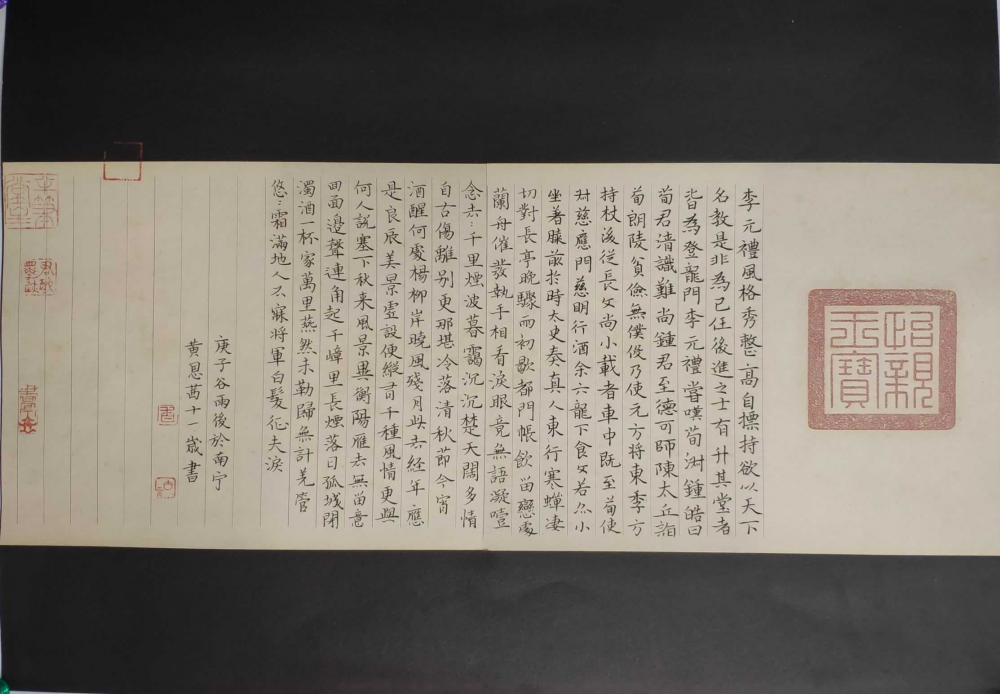 怡親王寶
李元禮風格秀整高自標持欲以天下
名教是非為己任後進之士有升其堂者
皆為登龍門李元禮嘗嘆荀淑鍾皓曰
荀君清識難尚鍾君至德可師陳太丘詣
荀朗陵貧儉無僕役乃使元方將東季方
持杖後從長文尚小載者車中既至荀使
叔慈應門慈明行酒余六龍下食文若亦小
坐著膝前於時太史奏真人東行寒蟬凄
切對長亭晚驟雨初歇都門帳飲留戀處
蘭舟催發執手相看淚眼竟無語凝噎
念去〻千里煙波暮靄沉沉楚天闊多情
自古傷離別更那堪冷落清秋節今宵
酒醒何處楊柳岸曉風殘月此去経年應
是良辰美景虛設便縱有千種風情更與
何人説塞下秋来風景異衡陽雁去無留意
四面邊聲連角起千嶂里長煙落日孤城閉
濁酒杯家萬里燕然未勒歸無計羌管
悠〻霜滿地人不寐將軍白髮征夫淚
庚子谷雨後於南宁
黄恩茜十一歲書